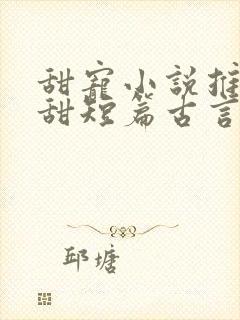 甜寵小説推
甜短篇古言
邱塘